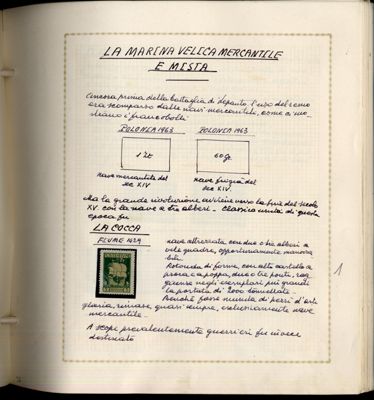 LA MARINA VELICA MERCANTILE
E MISTA
Ancora prima della battaglia di Lepanto, l'uso del remo
era scomparso dalle navi mercantili, come ci mo-
strano i francobolli
POLONIA 1963 POLONIA 1963
1 ZŁ 60 gr
nave mercantile del
sec XIV
nave frigia del
sec XIV.
Ma la grande rivoluzione avviene verso la fine del secolo
XV con la nave a tre alberi - classica nave di questa
epoca fu
LA COCCA
FIUME 1924
nave attrezzata con due o tre alberi a
vele quadre, opportunamente manovra
bili
Rotonda di forme, con alto castello a
prora e a poppa, due o tre ponti, rag-
giunse negli esemplari più grandi
la portata di 2000 tonnellate
Benché fosse munita di pezzi d'arti
glieria, rimase, quasi sempre, esclusivamente nave
mercantile -
A scopi prevalentemente guerrieri fu invece
destinato
1